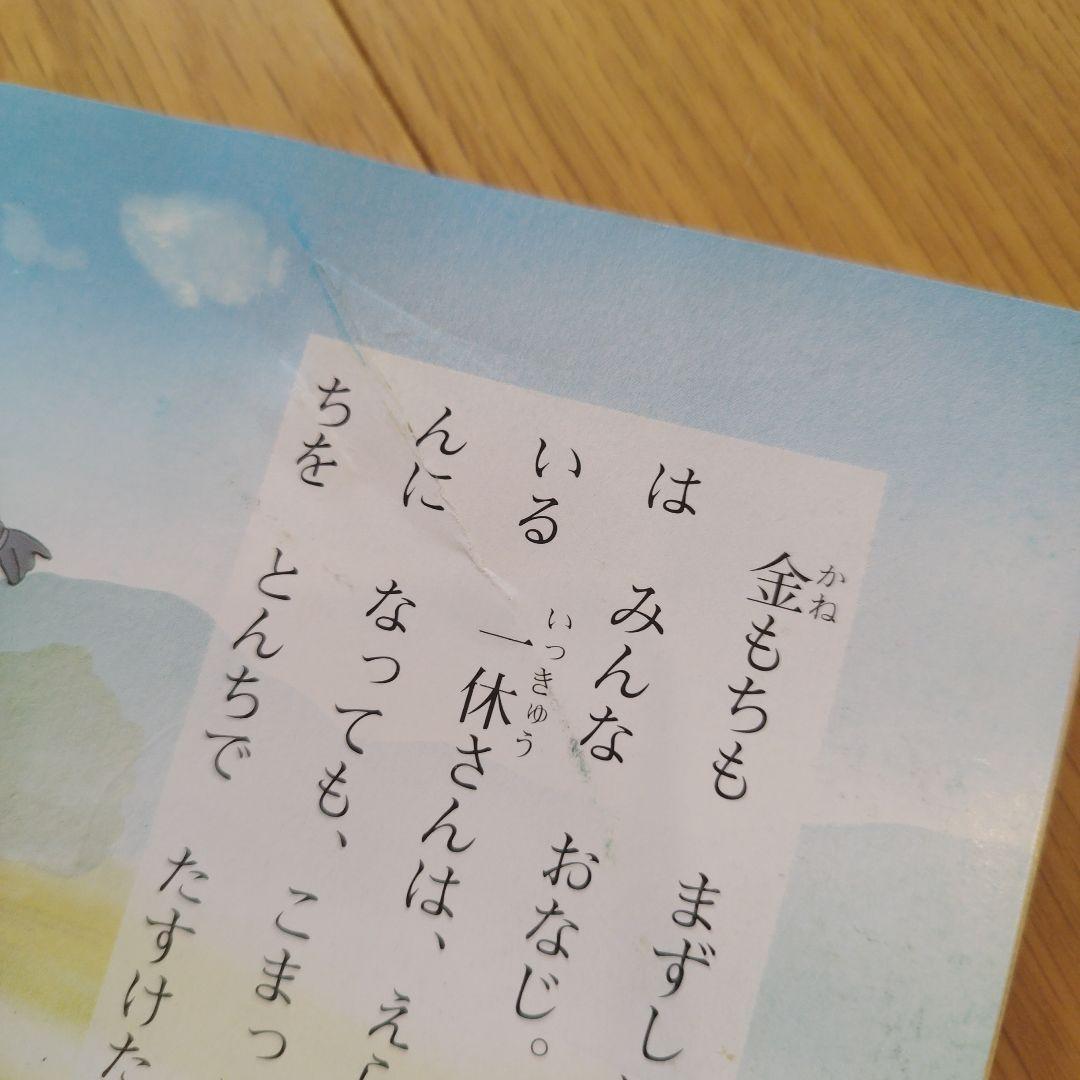 金もちも まずし
かね
は みんな おなじ。
いる 一休さんは、 え
いっきゅう
んに なっても、 こまっ
ちを とんちで たすけた